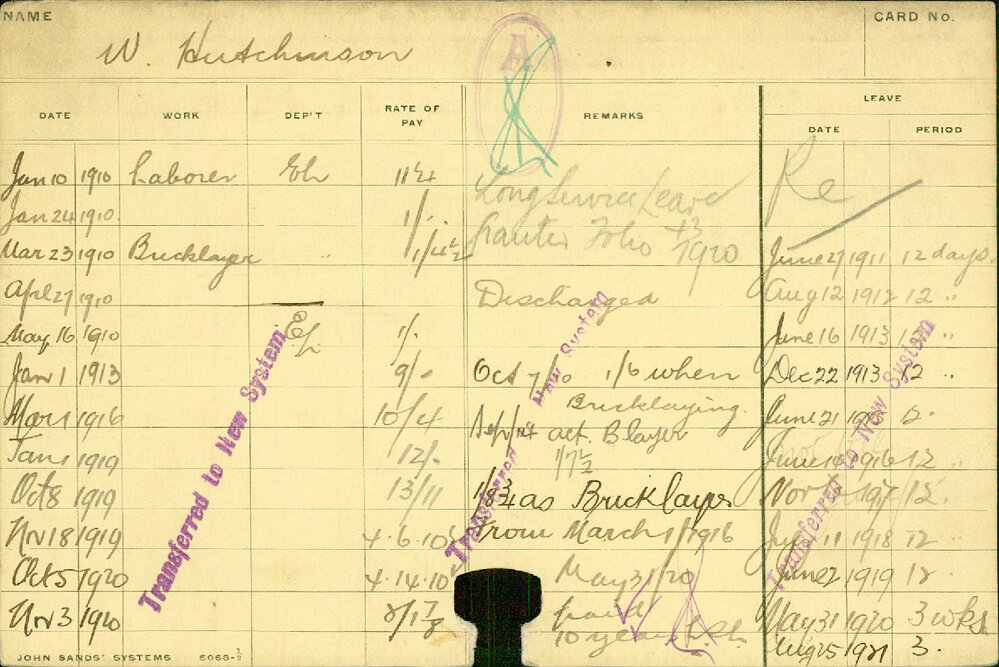 NAME
CARD No.
W. Hutchinson
A
LEAVE
DATE WORK DEP'T RATE OF PAY REMARKS DATE PERIOD
Jan 10 1910 Laborer 11¼ Long Service Leave Re
Jan 24 1910 1/-
Mar 23 1910 Bricklayer " 1/4½ Folio 43 1920 June 27 1911 12 days.
April 27 1910 Discharged Aug 12 1912 12 "
May 16 1910 1/- June 16 1913 12 "
Jan 1 1913 9/- Oct 7/10 1/6 when Dec 22 1913 12 "
Bricklaying.
Mar 1 1916 10/4 Sep/14 act. Blayer June 21 12
1/7½
Jan 1 1919 12/- June 1916 12 "
Oct 8 1919 13/11 1/8¾ as Bricklayer Nov 1917 12
Nov 18 1919 4.6.10 From March 1/1916 July 11 1918 12
Oct 5 1920 4.14.10 May 31/20 June 2 1919 12
Nov 3 1920 paid May 31 1920 3 wks
10 years Aug 25 1921 3.
Transferred to New System
Transferred to New System
Transferred to New System
JOHN SANDS' SYSTEMS 5068-½